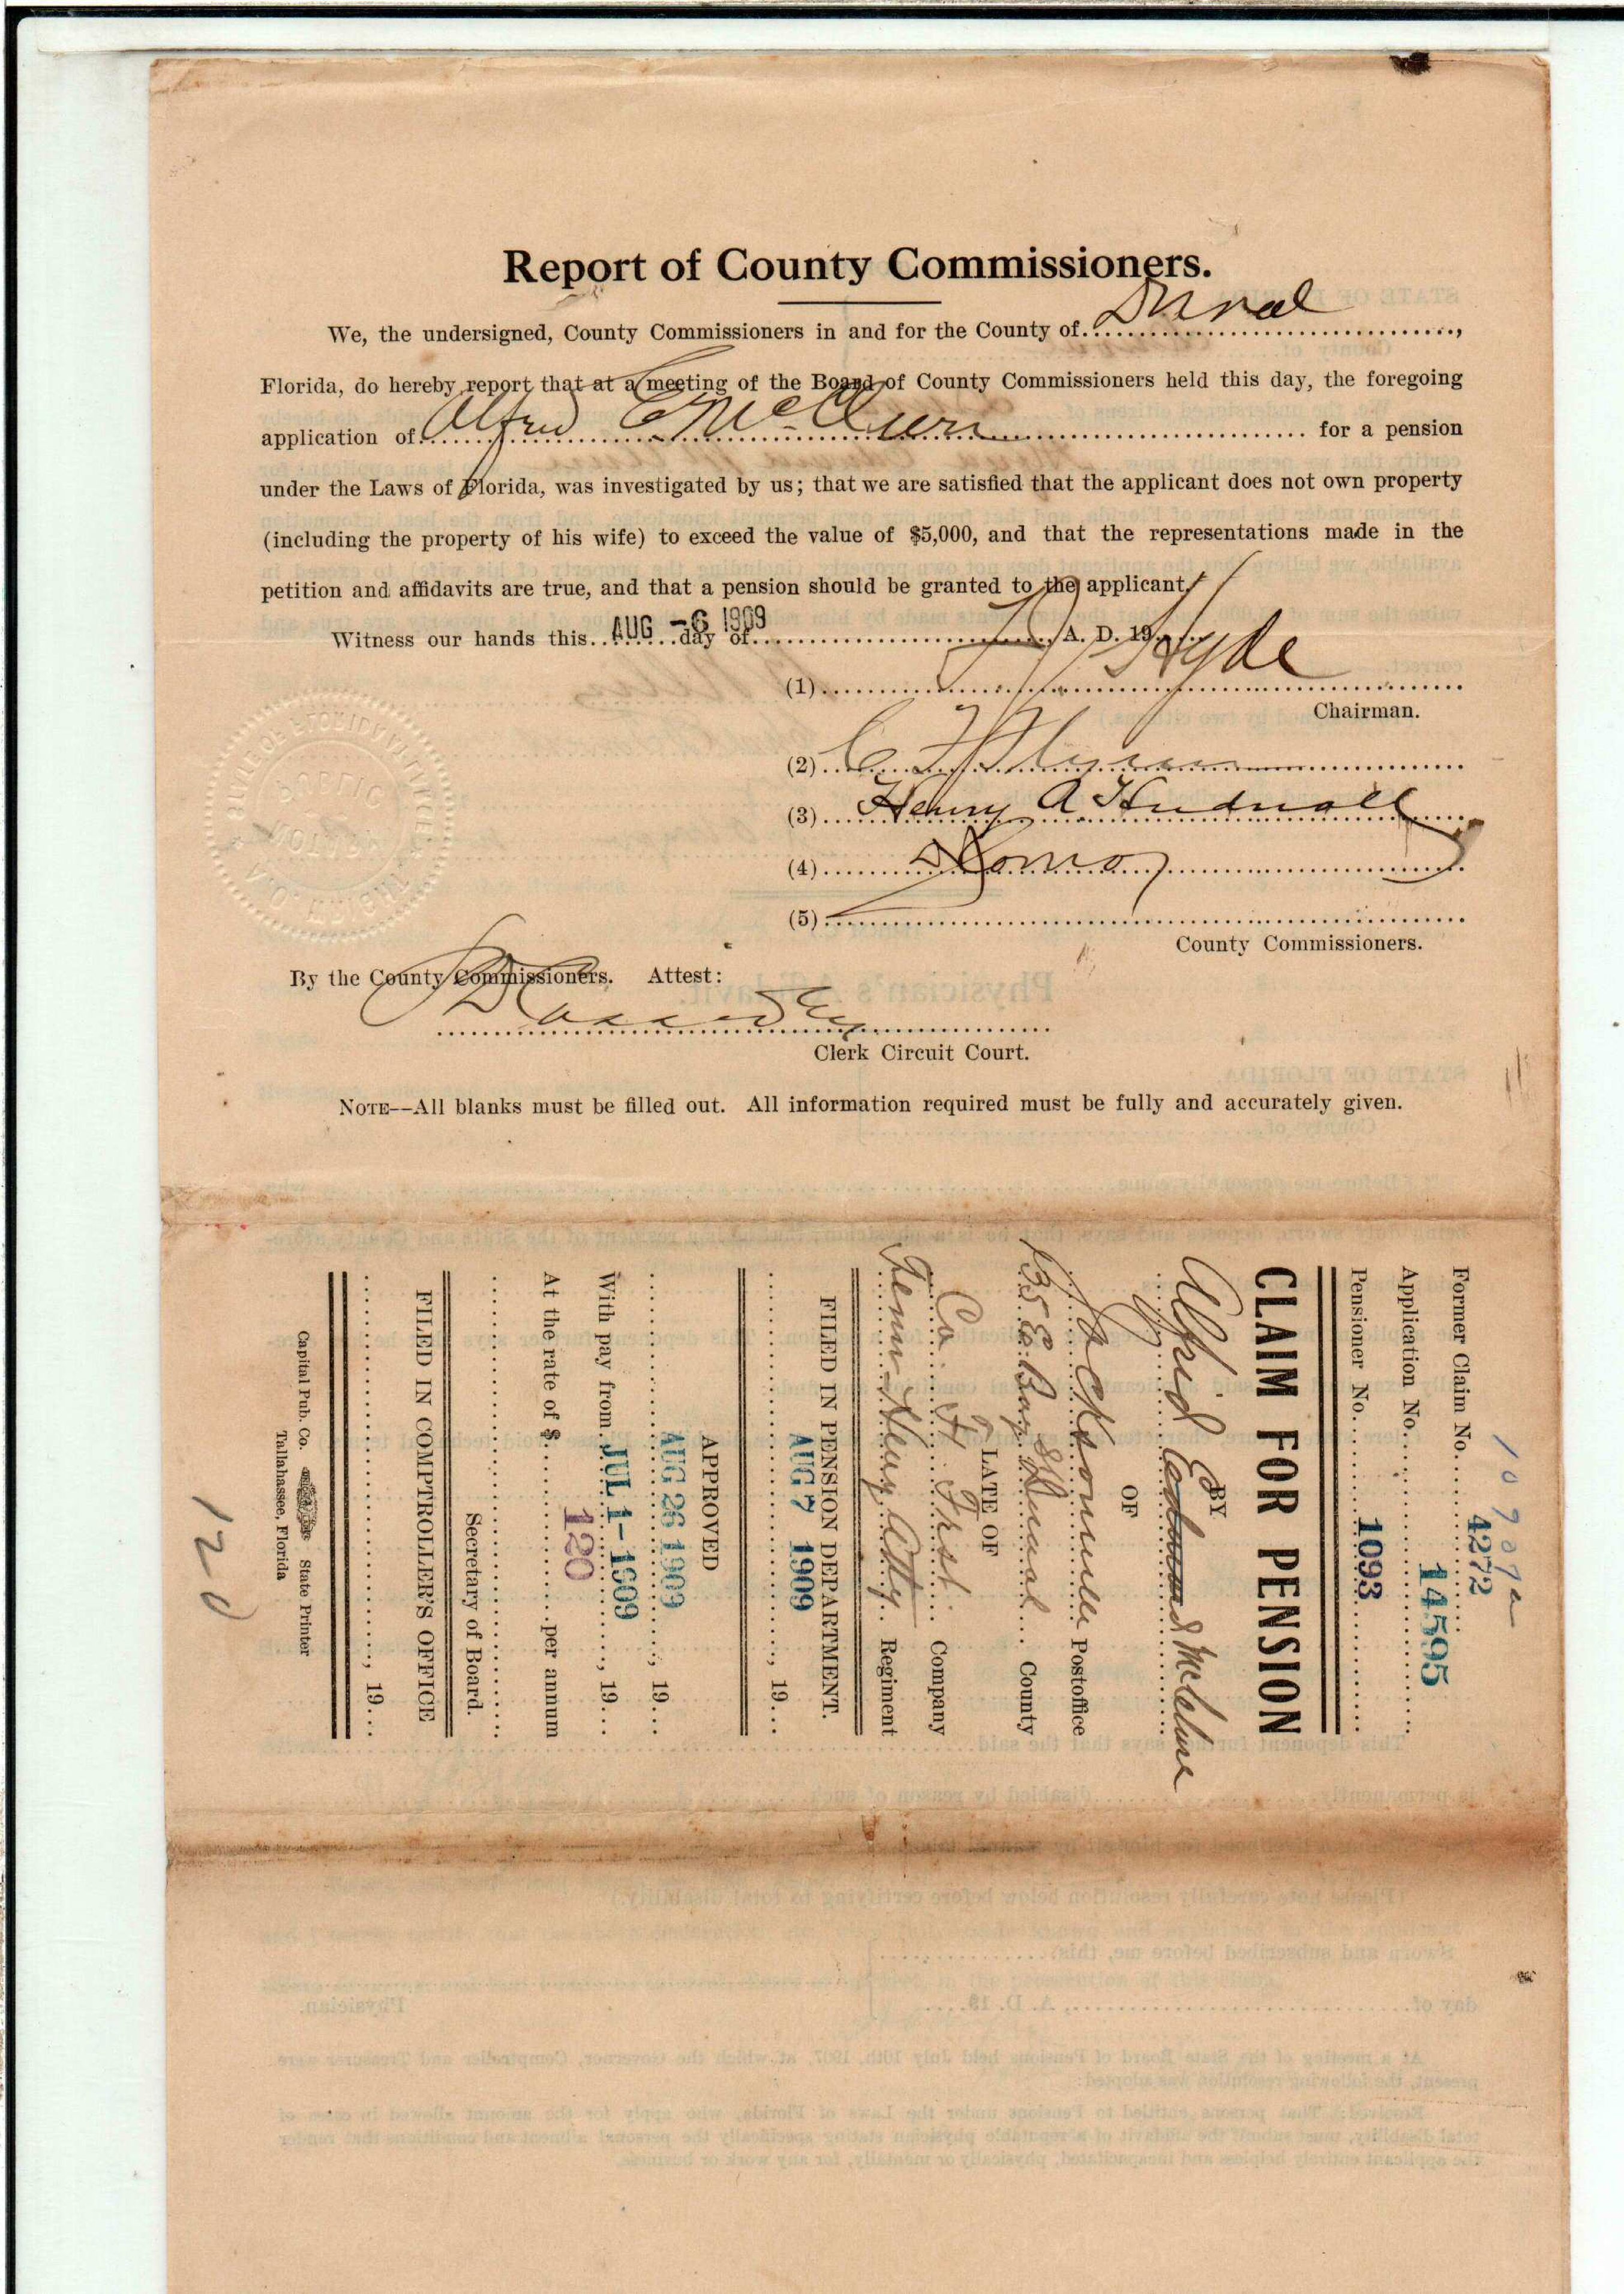 Report of County Commissioners.
We, the undersigned, County Commissioners in and for the County of Duval,
Florida, do hereby report that at a meeting of the Board of County Commissioners held this day, the foregoing
application of Alfred E McClure for a pension
under the Laws of Florida, was investigated by us; that we are satisfied that the applicant does not own property
(including the property of his wife) to exceed the value of $5,000, and that the representations made in the
petition and affidavits are true, and that a pension should be granted to the applicant.
Witness our hands this AUG -6 1909 day of A. D. 19
(1) Hyde
Chairman.
(2) C
(3) Henry A Hudnall
(4)
(5)
County Commissioners.
By the County Commissioners. Attest:
Clerk Circuit Court.
NOTE--All blanks must be filled out. All information required must be fully and accurately given.
Former Claim No. 4272
Application No. 14595
Pensioner No. 1093
CLAIM FOR PENSION
BY
Alfrid Edmund McClure
OF
Jacksonville Postoffice
135 E. Bay St Duval County
LATE OF
Co. First Company
Tenn Heavy Atty. Regiment
FILED IN PENSION DEPARTMENT.
AUG 7 1909, 19
APPROVED
AUG 26 1909, 19
With pay from JUL 1-1909, 19
At the rate of $ 120 per annum
Secretary of Board.
FILED IN COMPTROLLER'S OFFICE
, 19
Capital Pub. Co. State Printer
Tallahassee, Florida
120